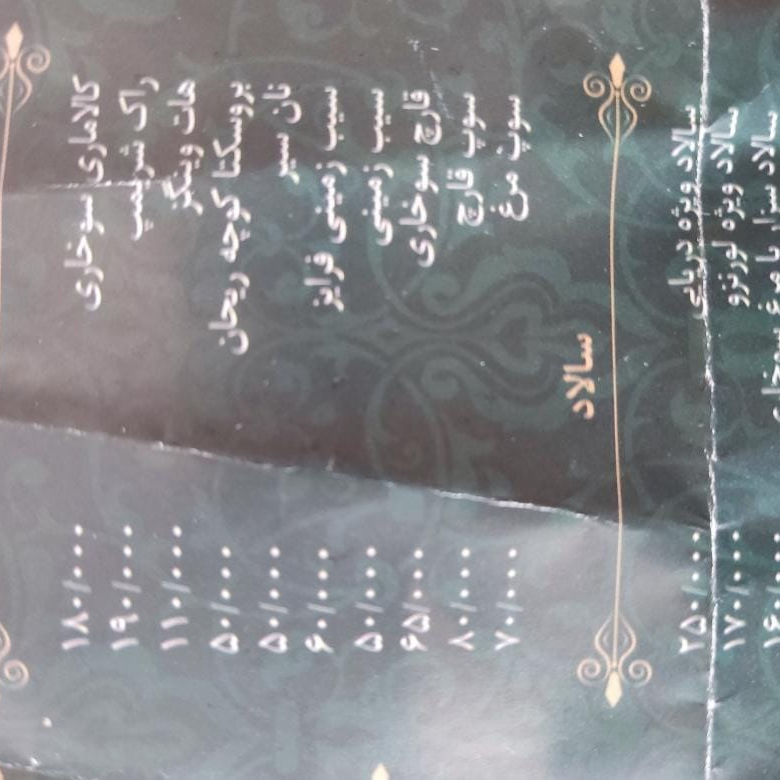 کالاماری سوخاری ۱۸۰/۰۰۰
راک شریمپ ۱۹۰/۰۰۰
هات وینگز ۱۱۰/۰۰۰
بروسکتا کوچه ریحان ۵۰/۰۰۰
نان سیر ۵۰/۰۰۰
سیب زمینی فرایز ۶۰/۰۰۰
سیب زمینی ۵۰/۰۰۰
قارچ سوخاری ۶۵/۰۰۰
سوپ قارچ ۸۰/۰۰۰
سوپ مرغ ۷۰/۰۰۰
سالاد
سالاد ویژه دریایی ۲۵۰/۰۰۰
سالاد ویژه لورنزو ۱۷۰/۰۰۰
سالاد سزار با مرغ سوخاری